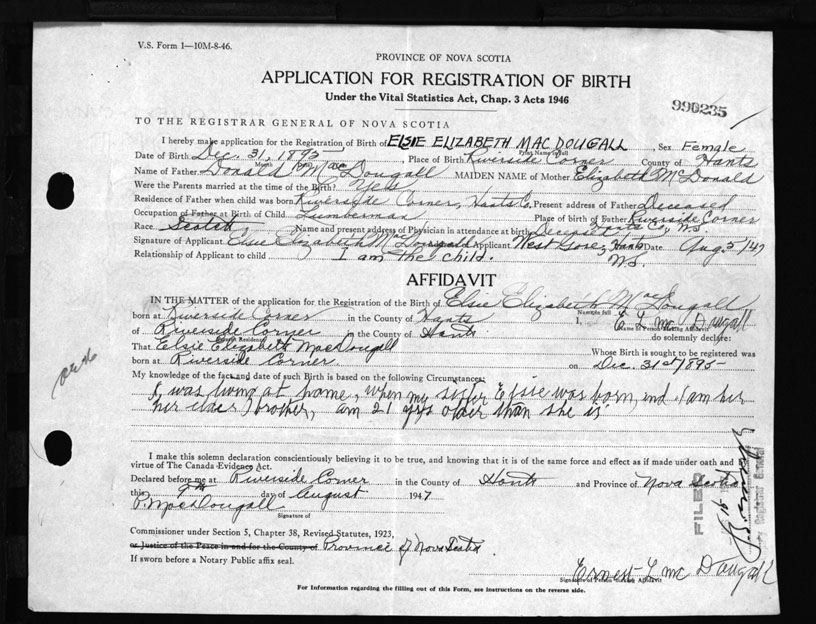 V.S. Form 1—10M-8-46.
PROVINCE OF NOVA SCOTIA
APPLICATION FOR REGISTRATION OF BIRTH
Under the Vital Statistics Act, Chap. 3 Acts 1946
990235
TO THE REGISTRAR GENERAL OF NOVA SCOTIA
I hereby make application for the Registration of Birth of ELSIE ELIZABETH MACDOUGALL, Sex Female
Print Name in full
Date of Birth Dec. 31, 1895, Place of Birth Riverside Corner County of Hants
Month
Name of Father Donald MacDougall MAIDEN NAME of Mother Elizabeth McDonald
Were the Parents married at the time of the Birth? Yes
Residence of Father when child was born Riverside Corner, Hants Co. Present address of Father Deceased
Occupation of Father at Birth of Child Lumberman Place of birth of Father Riverside Corner
Race Scotch Name and present address of Physician in attendance at birth Deceased Hants Co., N.S.
Signature of Applicant Elsie Elizabeth MacDougall Applicant West Gore, Hants Date Aug 5/47
Relationship of Applicant to child I am the child. N.S.
AFFIDAVIT
IN THE MATTER of the application for the Registration of the Birth of Elsie Elizabeth MacDougall
Name in full
born at Riverside Corner in the County of Hants I, E L McDougall
Name of Person Making Affidavit
of Riverside Corner in the County of Hants do solemnly declare:
That Elsie Elizabeth MacDougall Whose Birth is sought to be registered was
born at Riverside Corner on Dec. 31st 1895
My knowledge of the fact and date of such Birth is based on the following Circumstances:
I, was living at home, when my sister Elsie was born, and I am her
her elder brother, am 21 yrs older than she is
I make this solemn declaration conscientiously believing it to be true, and knowing that it is of the same force and effect as if made under oath and
virtue of The Canada Evidence Act.
Declared before me at Riverside Corner in the County of Hants and Province of Nova Scotia
this 7th day of August 1947
P. MacDougall
Signature of
Commissioner under Section 5, Chapter 38, Revised Statutes, 1923,
or Justice of the Peace in and for the County of Province of Nova Scotia
If sworn before a Notary Public affix seal.
Ernest L McDougall
Signature of Person Making Affidavit
For Information regarding the filling out of this Form, see instructions on the reverse side.
FILED
Registrar General